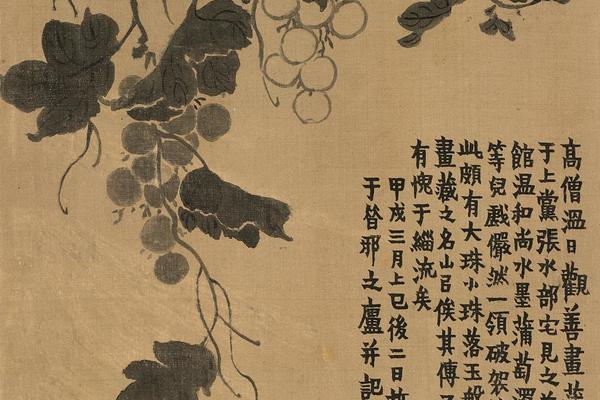 高僧溫日觀善畫
于上黨張水部宅見之
館溫和尚水墨蒲萄
等兒戲儼然一領破袈
此頗有大珠小珠落玉般
畫藏之名山㠯俟其傳
有愧于緇流矣
甲戌三月上巳後二日
于昔邪之廬并記